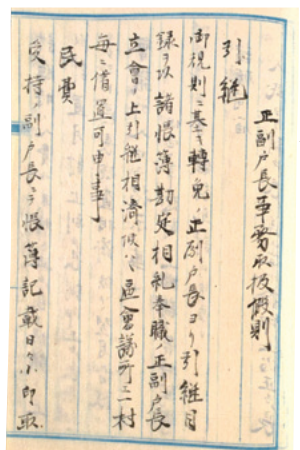 正副戸長事務取扱假則
引継
御規則ニ基キ轉免ノ正副戸長ヨリ引継目
録ヲ以諸帳簿勘定相糺奉職ノ正副戸長
立會ノ上引継相濟候ハヽ區會議所ニ一村
毎ニ備置可申事
民費
受持ノ副戸長ニテ帳簿記載日々小印取